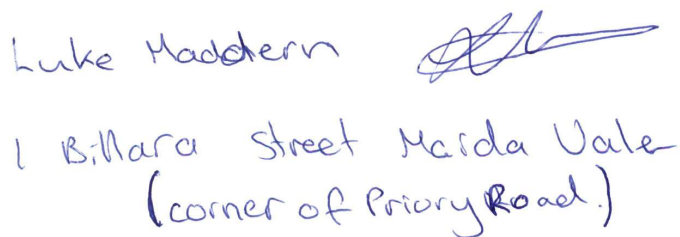 Luke Maddern
1 Billara Street Maida Vale
(corner of Priory Road.)